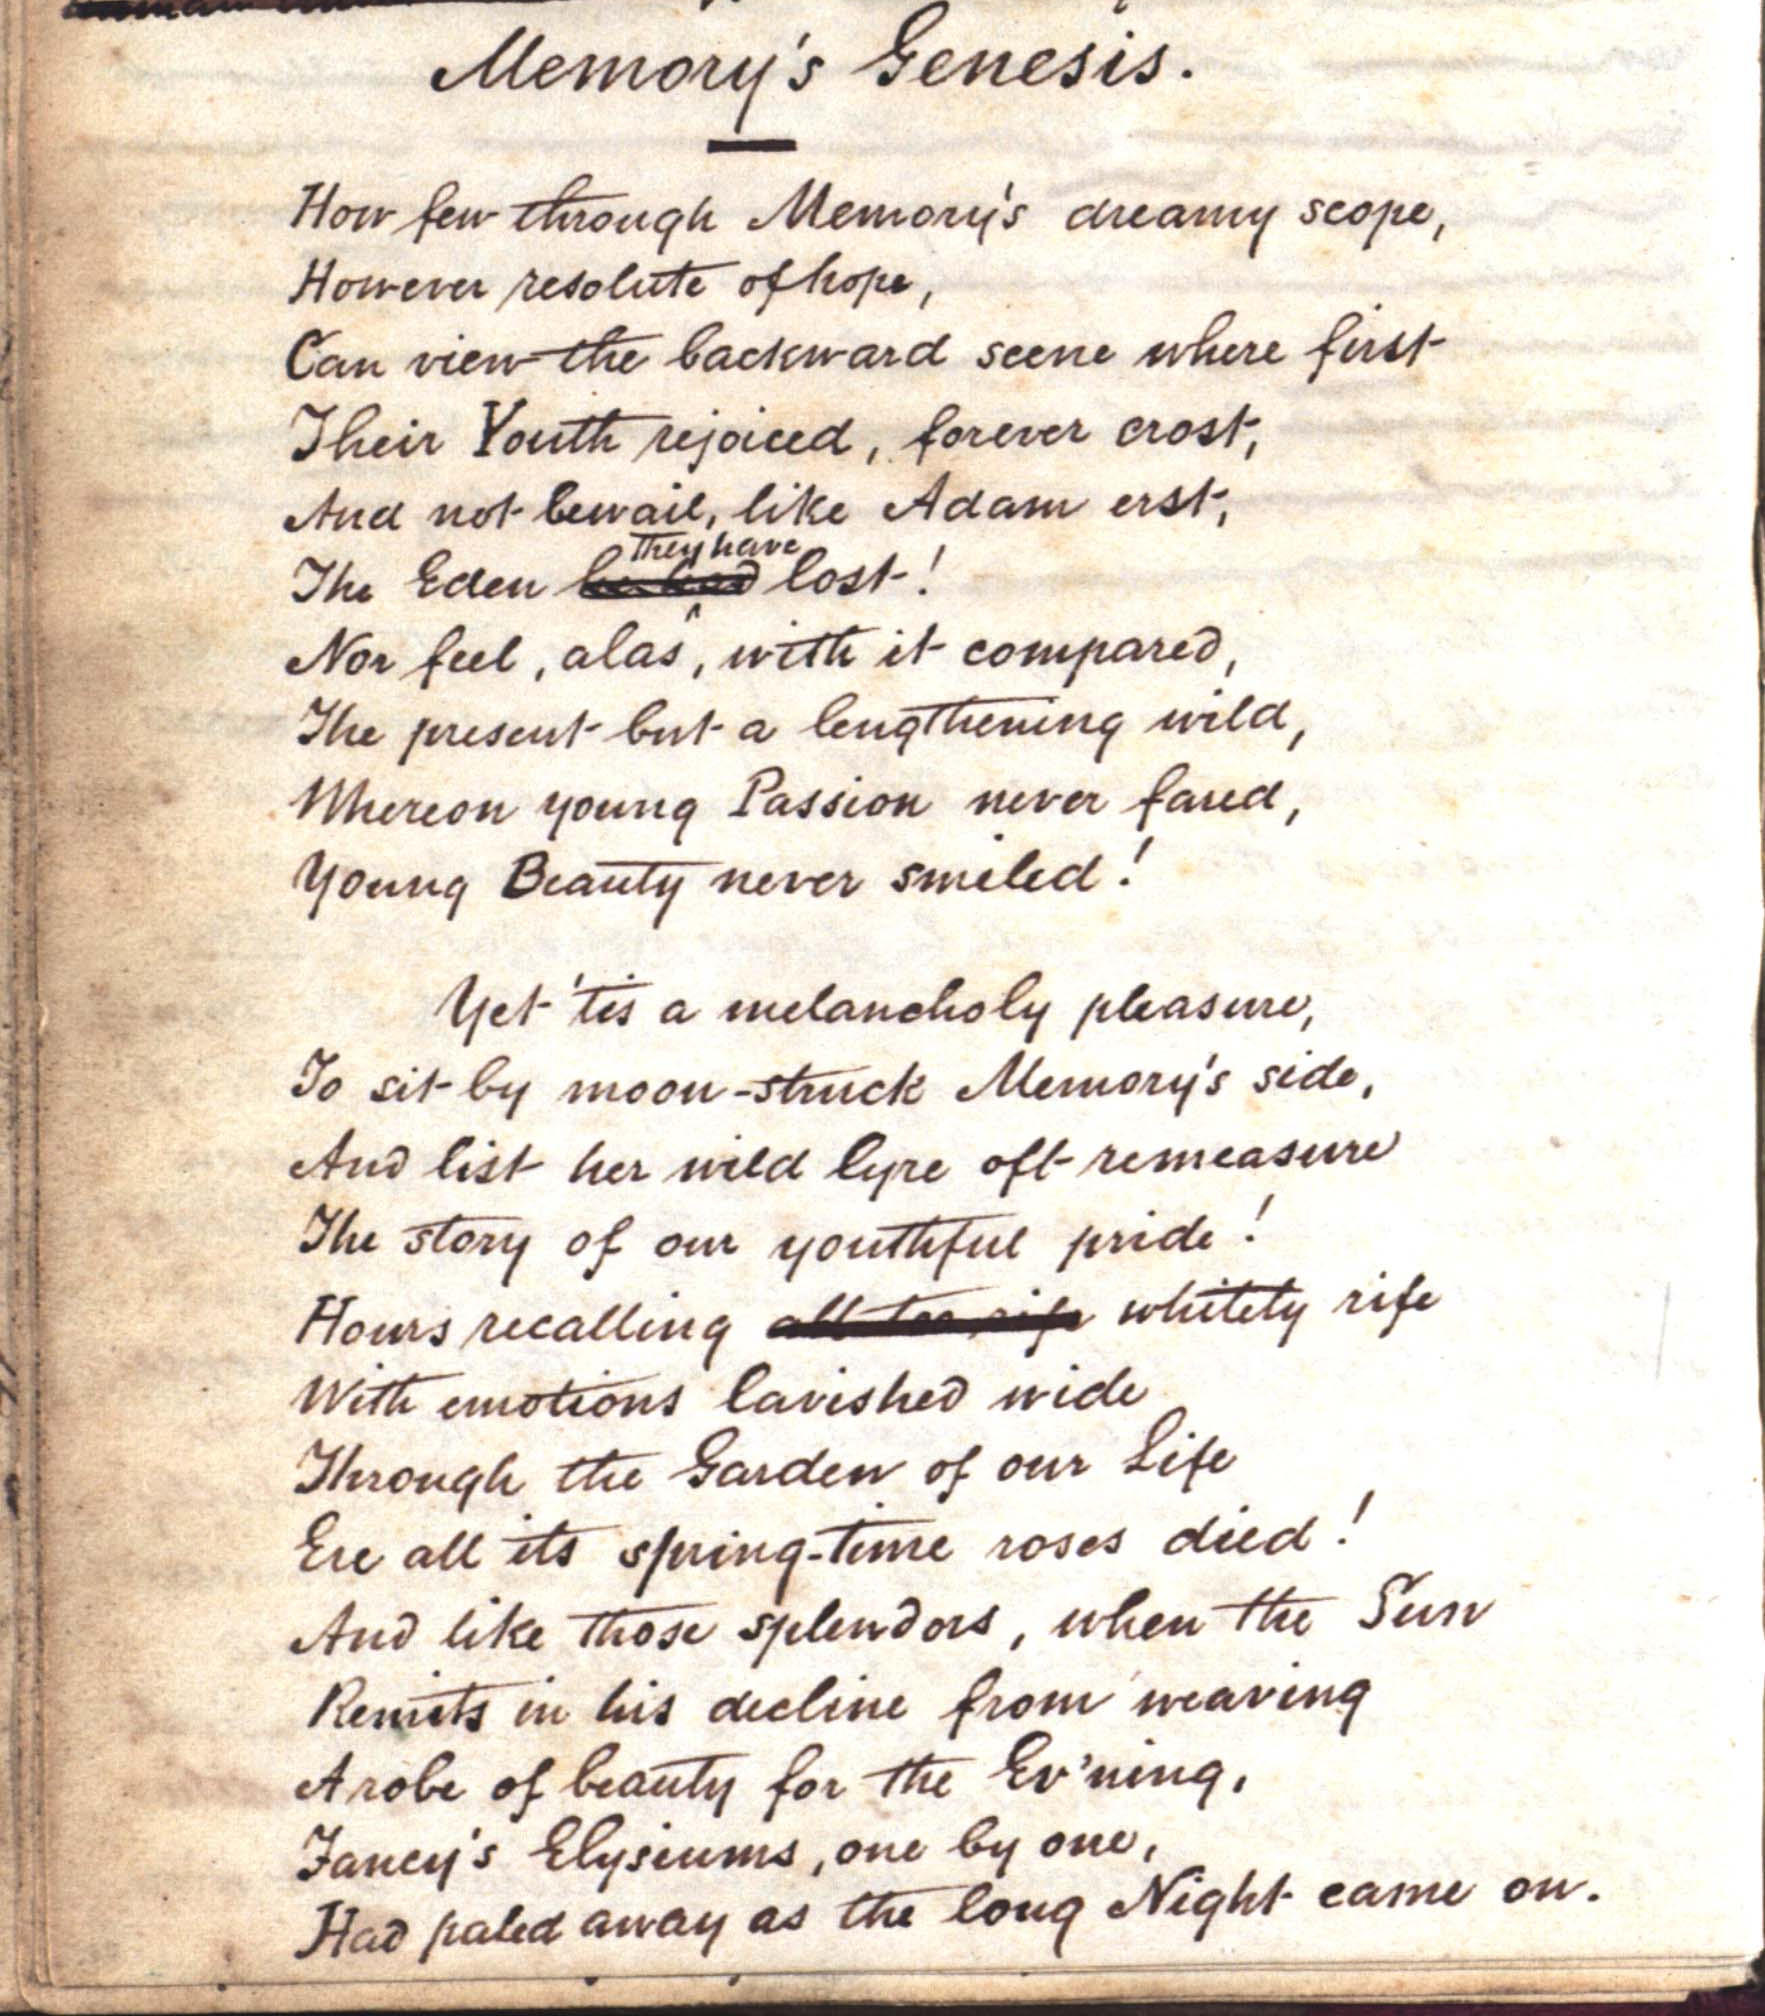 Memory's Genesis.
How few through Memory's dreamy scope,
However resolute of hope,
Can view the backward scene where first
Their Youth rejoiced, forever crost,
And not bewail, like Adam erst,
they have
The Eden he had lost!
Nor feel, alas, with it compared,
The present but a lengthening wild,
Whereon young Passion never fared,
Young Beauty never smiled!
Yet 'tis a melancholy pleasure,
To sit by moon-struck Memory's side,
And list her wild lyre oft remeasure
The story of our youthful pride!
Hours recalling all too rife whitely rife
With emotions lavished wide
Through the Garden of our Life
Ere all its spring-time roses died!
And like those splendors, when the Sun
Remits in his decline from weaving
A robe of beauty for the Ev'ning,
Fancy's Elysiums, one by one,
Had paled away as the long Night came on.